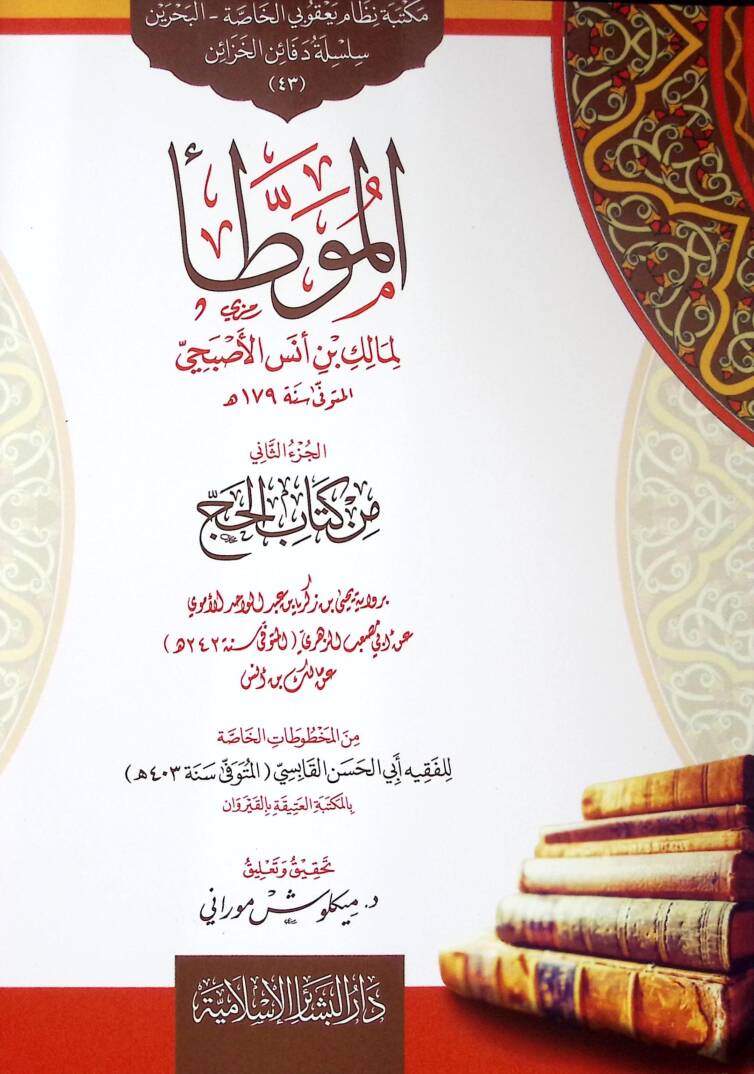 مكتبة نظام يعقوبي الخاصة - البحرين
سلسلة دفائن الخزائن
(٤٣)
المُوَطَّأ
لِمَالِكِ بْنِ أَنَس الأَصْبَحِيّ
المتوفى سنة ١٧٩ ه
الجُزءُ الثَّاني
مِنْ كِتَابِ الحَجّ
برواية يحيى بن زكريا بن عبد الواحد الأموي
عن أبي مصعب الزهري (المتوفى سنة ٢٤٢ ه)
عن مالك بن أنس
مِنَ المَخْطُوطَاتِ الخَاصَّة
لِلفَقِيه أَبِي الحَسَن القَابِسِيّ (المُتَوَفَّى سَنَة ٤٠٣ ه)
بِالمَكْتَبَةِ العَتِيقَةِ بِالقَيْرَوَان
تَحْقِيقُ وَتَعْلِيقُ
د. ميكلوش موراني
دَارُ البَشَائِرِ الإِسْلَامِيَّة